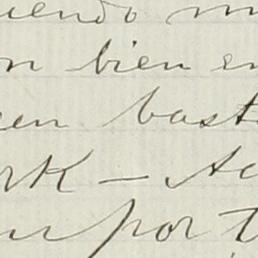 uendo m
n bien en
en bast
rk — Ac
n por t